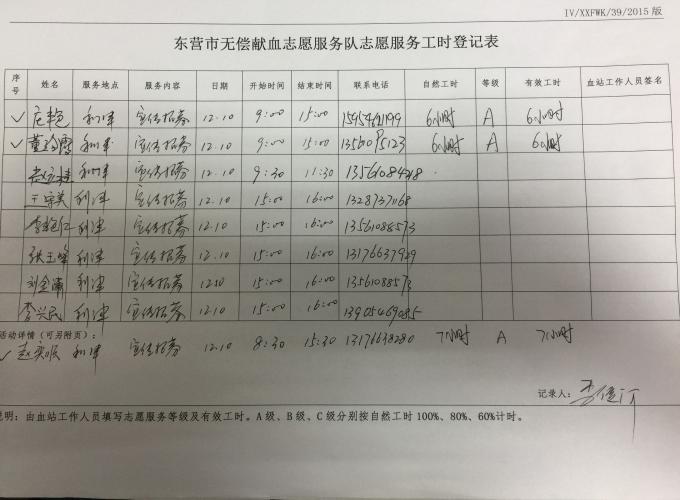 IV/XXFWK/39/2015 版
东营市无偿献血志愿服务队志愿服务工时登记表
序号 姓名 服务地点 服务内容 日期 开始时间 结束时间 联系电话 自然工时 等级 有效工时 血站工作人员签名
利津 宣传招募 12.10 9:00 15:00 6小时 A 6小时
利津 宣传招募 12.10 9:00 15:00 6小时 A 6小时
利津 宣传招募 12.10 9:30 11:30 13561084218
利津 宣传招募 12.10 15:00 16:00 13287371168
利津 宣传招募 12.10 15:00 16:00 13561088573
张玉峰 利津 宣传招募 12.10 15:00 16:00 13176637929
利津 宣传招募 12.10 15:00 16:00 13561088573
李兴民 利津 宣传招募 12.10 15:00 16:00 13905469085
活动详情（可另附页）：
利津 宣传招募 12.10 8:30 15:30 13176638280 7小时 A 7小时
记录人：
说明：由血站工作人员填写志愿服务等级及有效工时。A级、B级、C级分别按自然工时100%、80%、60%计时。